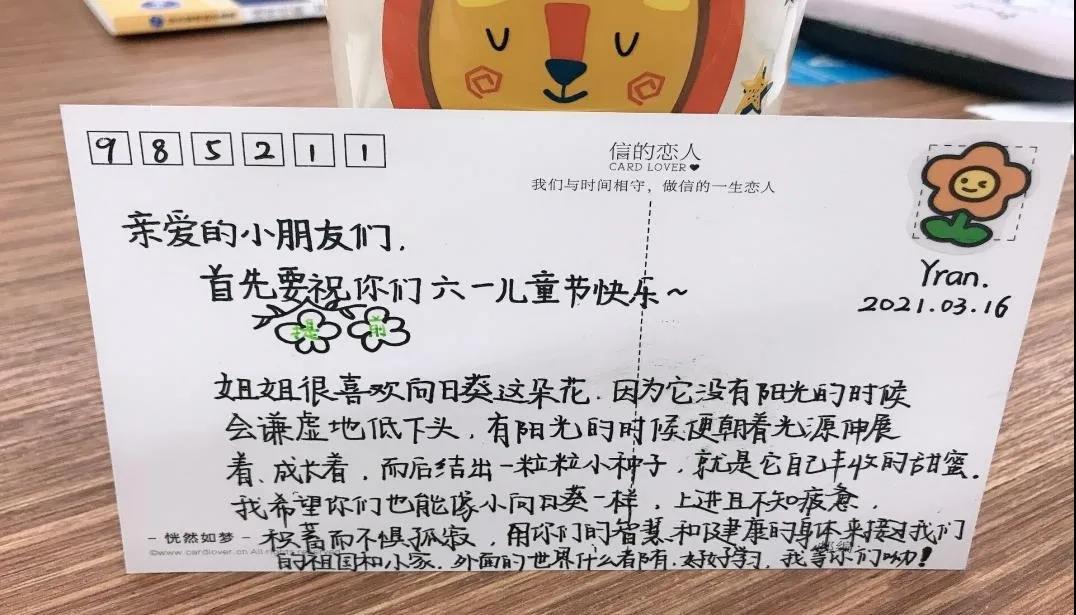 985211
信的恋人
CARD LOVER
我们与时间相守，做信的一生恋人
Yran.
2021.03.16
亲爱的小朋友们，
首先要祝你们六一儿童节快乐~
提前
姐姐很喜欢向日葵这朵花．因为它没有阳光的时候
会谦虚地低下头，有阳光的时候便朝着光源伸展
着、成长着，而后结出一粒粒小种子，就是它自己丰收的甜蜜．
我希望你们也能像小向日葵一样，上进且不知疲惫，
积蓄而不惧孤寂，用你们的智慧和健康的身体来接过我们
的祖国和小家．外面的世界什么都有．好好学习，我等你们呦！
- 恍然如梦 -
©www.cardlover.cn All rights reserved